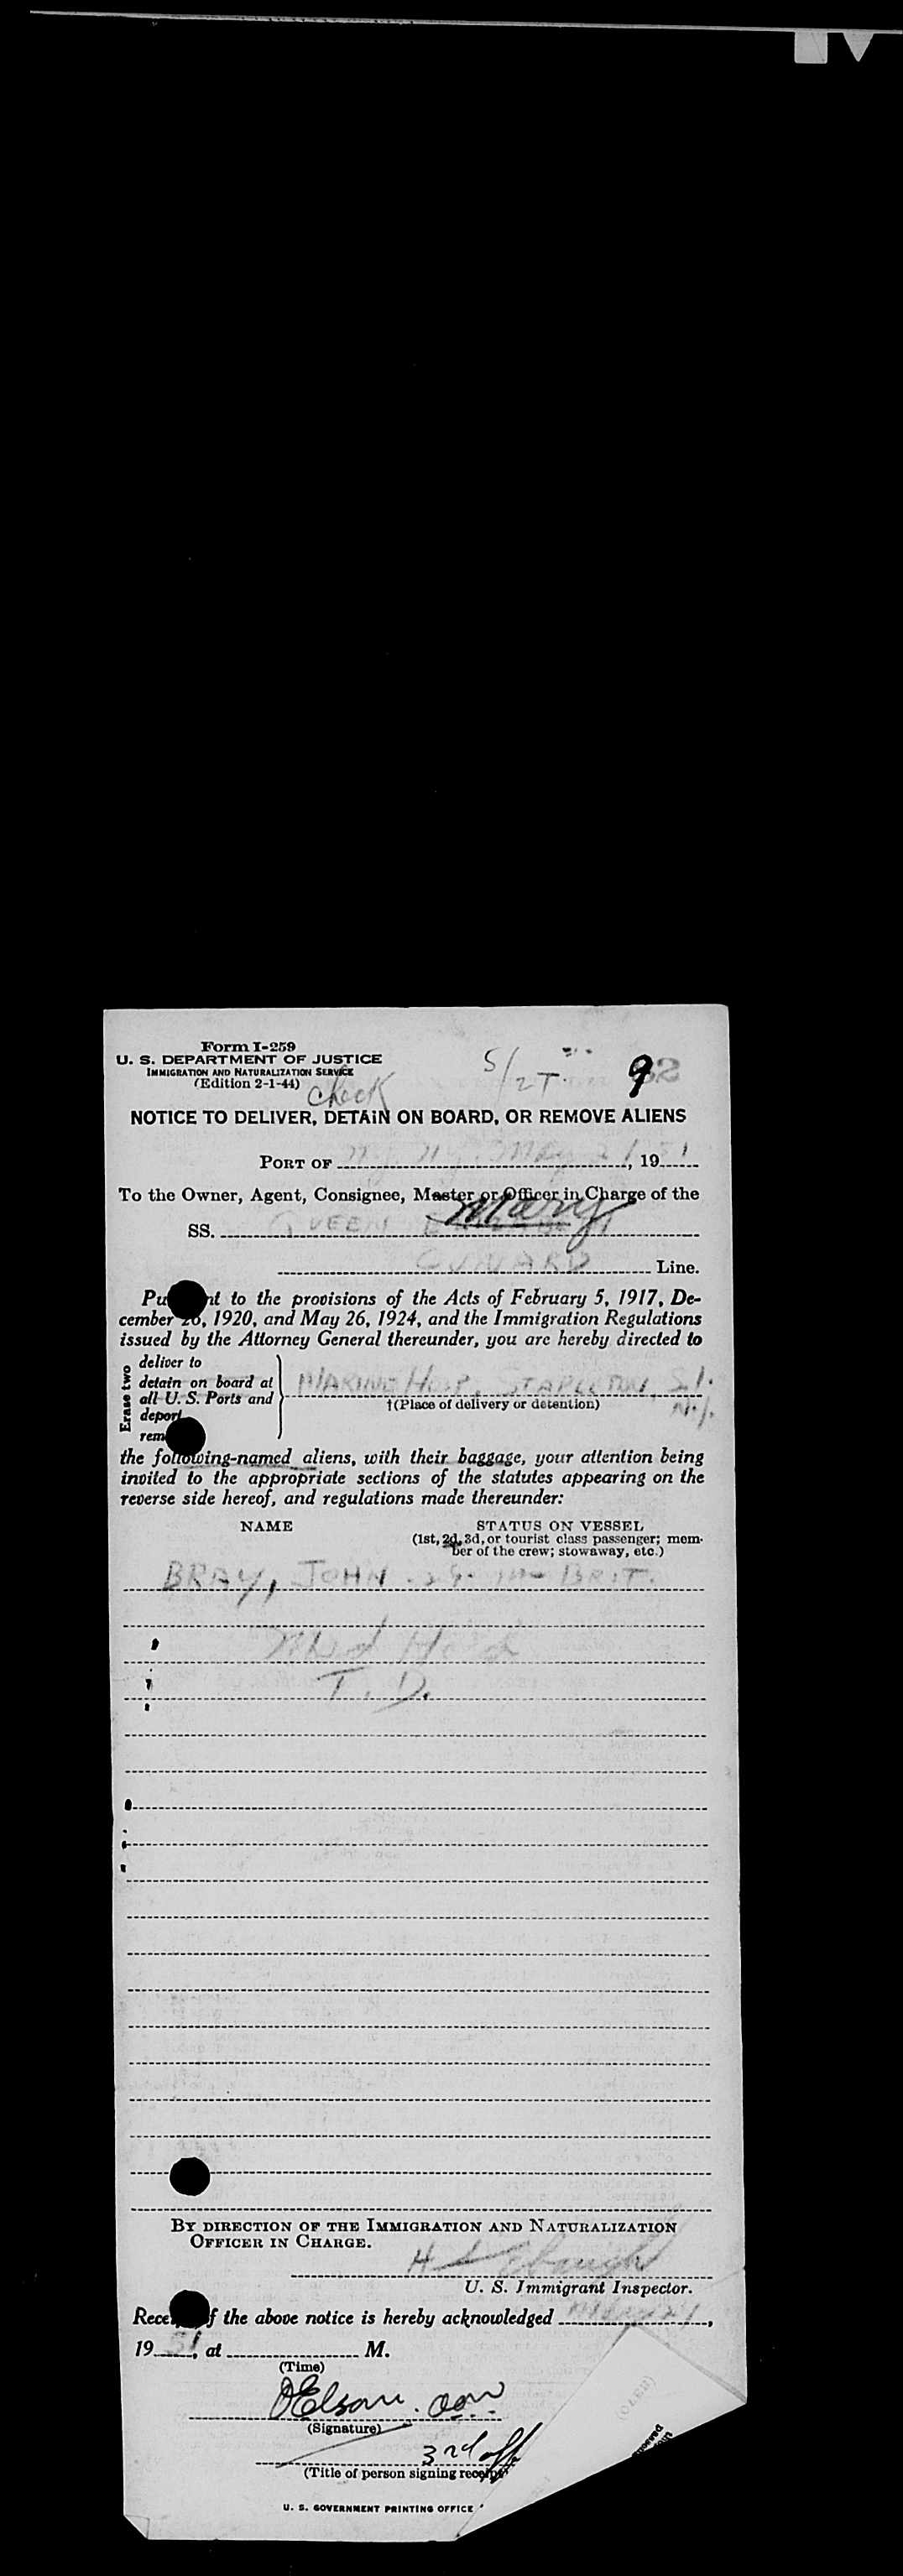 Form I-259
U. S. DEPARTMENT OF JUSTICE
IMMIGRATION AND NATURALIZATION SERVICE
(Edition 2-1-44)
check
5/2T
9
NOTICE TO DELIVER, DETAIN ON BOARD, OR REMOVE ALIENS
PORT OF N.Y. N.Y. May 21, 1951
To the Owner, Agent, Consignee, Master or Officer in Charge of the
SS. QUEEN Mary
CUNARD Line.
Pu nt to the provisions of the Acts of February 5, 1917, De-
cember 26, 1920, and May 26, 1924, and the Immigration Regulations
issued by the Attorney General thereunder, you are hereby directed to
Erase two
deliver to
detain on board at
all U. S. Ports and
deport
rem
MARINE HOSP. STAPLETON, S.I.
N.Y.
†(Place of delivery or detention)
the following-named aliens, with their baggage, your attention being
invited to the appropriate sections of the statutes appearing on the
reverse side hereof, and regulations made thereunder:
NAME
STATUS ON VESSEL
(1st, 2d, 3d, or tourist class passenger; mem-
ber of the crew; stowaway, etc.)
BRAY, JOHN . 29 . m - BRIT.
Med Hold
T. D.
BY DIRECTION OF THE IMMIGRATION AND NATURALIZATION
OFFICER IN CHARGE.
U. S. Immigrant Inspector.
Rece f the above notice is hereby acknowledged
1951, at M.
(Time)
(Signature)
3rd off
(Title of person signing receipt)
U. S. GOVERNMENT PRINTING OFFICE